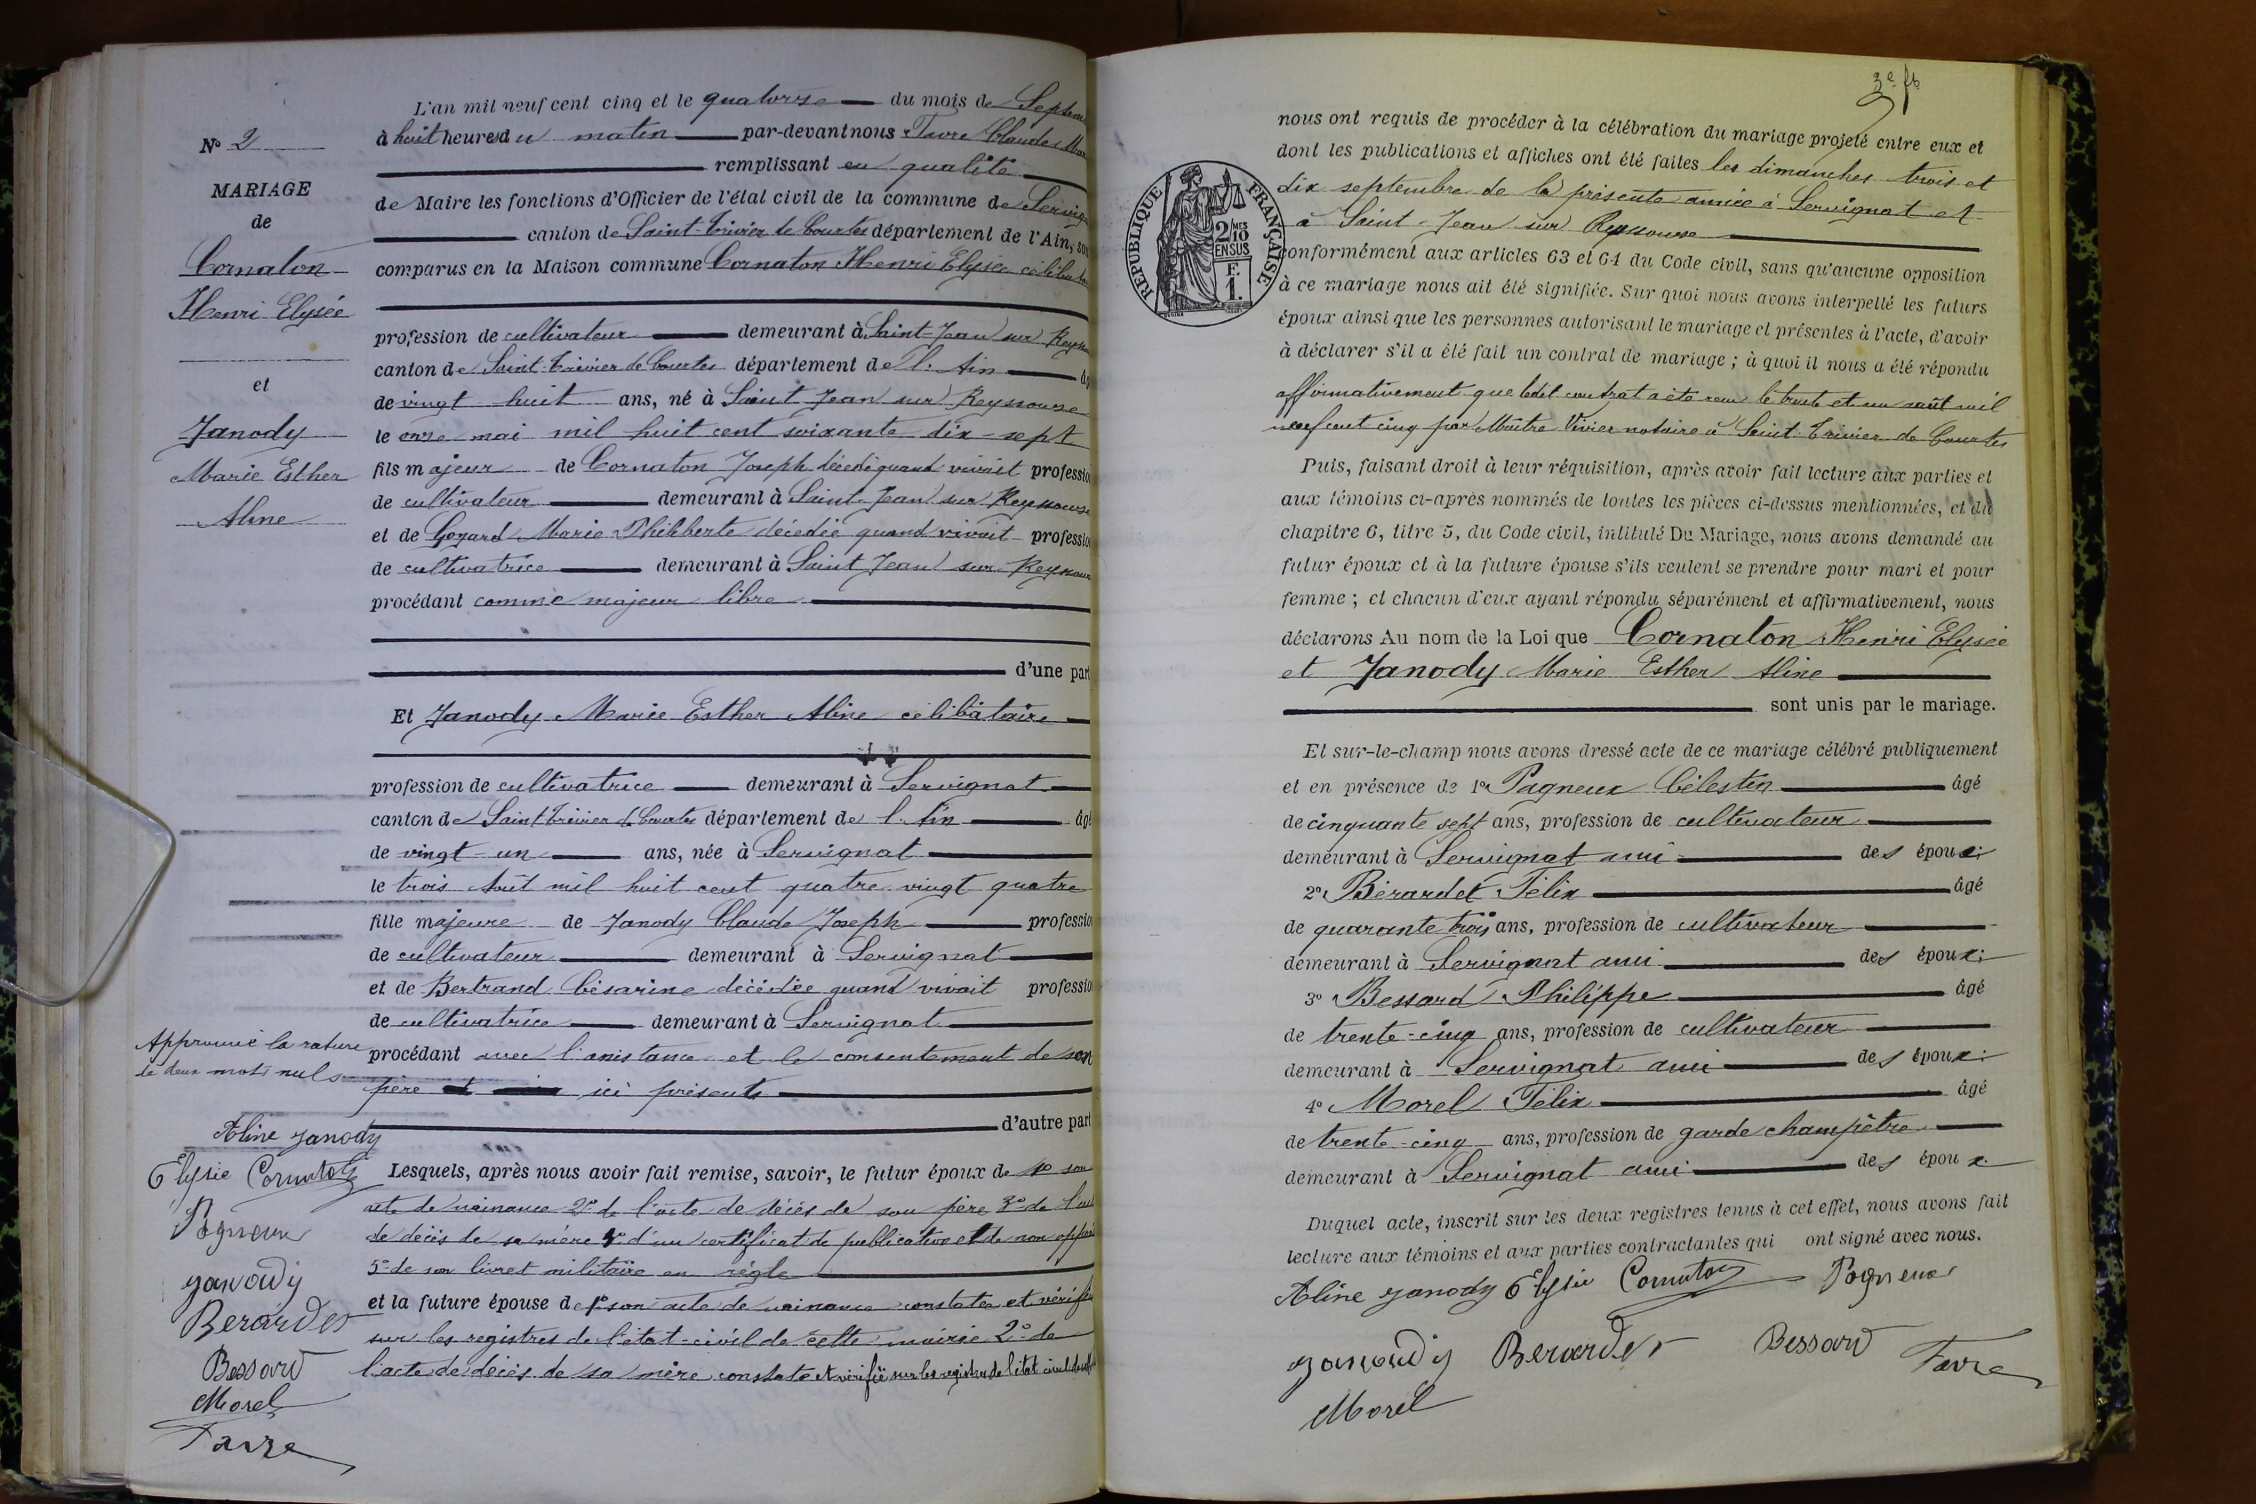 N° 2
MARIAGE
de
Cornaton
Henri Elysée
et
Janody
Marie Esther
Aline
L'an mil neuf cent cinq et le quatorze du mois de Septem
à huit heures du matin par-devant nous Favre Claude Mar
remplissant en qualité
de Maire les fonctions d'Officier de l'état civil de la commune de Servign
canton de Saint-Trivier de Courtes département de l'Ain, son
comparus en la Maison commune Cornaton Henri Elysée célibatai
profession de cultivateur demeurant à Saint-Jean sur Reyss
canton de Saint-Trivier de Courtes département de l'Ain âg
de vingt huit ans, né à Saint Jean sur Reyssouze
le onze mai mil huit cent soixante dix-sept
fils majeur de Cornaton Joseph décédé quand vivait professio
de cultivateur demeurant à Saint-Jean sur Reyssouze
et de Goyard Marie Philiberte décédée quand vivait professio
de cultivatrice demeurant à Saint Jean sur Reyssouz
procédant comme majeur libre
d'une part
Et Janody Marie Esther Aline célibataire
profession de cultivatrice demeurant à Servignat
canton de Saint Trivier de Courtes département de l'Ain âgé
de vingt-un ans, née à Servignat
le trois Août mil huit cent quatre vingt quatre
fille majeure de Janody Claude Joseph professio
de cultivateur demeurant à Servignat
et de Bertrand Césarine décédée quand vivait professio
de cultivatrice demeurant à Servignat
procédant avec l'assistance et le consentement de son
père ici présents
d'autre part
Approuvé la rature
de deux mots nuls
Aline Janody
Elysée Cornaton
Pagneux
Janody
Berardet
Bessard
Morel
Favre
Lesquels, après nous avoir fait remise, savoir, le futur époux de 1° son
acte de naissance 2° de l'acte de décès de son père 3° de l'act
de décès de sa mère 4° d'un certificat de publication et de non oppos
5° de son livret militaire en règle
et la future épouse de 1° son acte de naissance constatée et vérifié
sur les registres de l'état-civil de cette mairie 2° de
l'acte de décès de sa mère constaté et vérifié sur les registres de l'état civil de
3e f6
REPUBLIQUE FRANÇAISE
2/10
MES
EN SUS
F.
1.
nous ont requis de procéder à la célébration du mariage projeté entre eux et
dont les publications et affiches ont été faites les dimanches trois et
dix septembre de la présente année à Servignat et
à Saint-Jean sur Reyssouze
conformément aux articles 63 et 64 du Code civil, sans qu'aucune opposition
à ce mariage nous ait été signifiée. Sur quoi nous avons interpellé les futurs
époux ainsi que les personnes autorisant le mariage et présentes à l'acte, d'avoir
à déclarer s'il a été fait un contrat de mariage ; à quoi il nous a été répondu
affirmativement que ledit contrat a été reçu le trente et un août mil
neuf cent cinq par Maître Vivier notaire à Saint-Trivier de Courtes
Puis, faisant droit à leur réquisition, après avoir fait lecture aux parties et
aux témoins ci-après nommés de toutes les pièces ci-dessus mentionnées, et du
chapitre 6, titre 5, du Code civil, intitulé Du Mariage, nous avons demandé au
futur époux et à la future épouse s'ils veulent se prendre pour mari et pour
femme ; et chacun d'eux ayant répondu séparément et affirmativement, nous
déclarons Au nom de la Loi que Cornaton Henri Elysée
et Janody Marie Esther Aline
sont unis par le mariage.
Et sur-le-champ nous avons dressé acte de ce mariage célébré publiquement
et en présence de 1° Pagneux Célestin âgé
de cinquante sept ans, profession de cultivateur
demeurant à Servignat ami des époux
2° Bérardet Félix âgé
de quarante trois ans, profession de cultivateur
demeurant à Servignat ami des époux
3° Bessard Philippe âgé
de trente-cinq ans, profession de cultivateur
demeurant à Servignat ami des époux
4° Morel Félix âgé
de trente-cinq ans, profession de garde champêtre
demeurant à Servignat ami des époux
Duquel acte, inscrit sur les deux registres tenus à cet effet, nous avons fait
lecture aux témoins et aux parties contractantes qui ont signé avec nous.
Aline Janody Elysée Cornaton Pagneux
Janody Berardet Bessard Favre
Morel